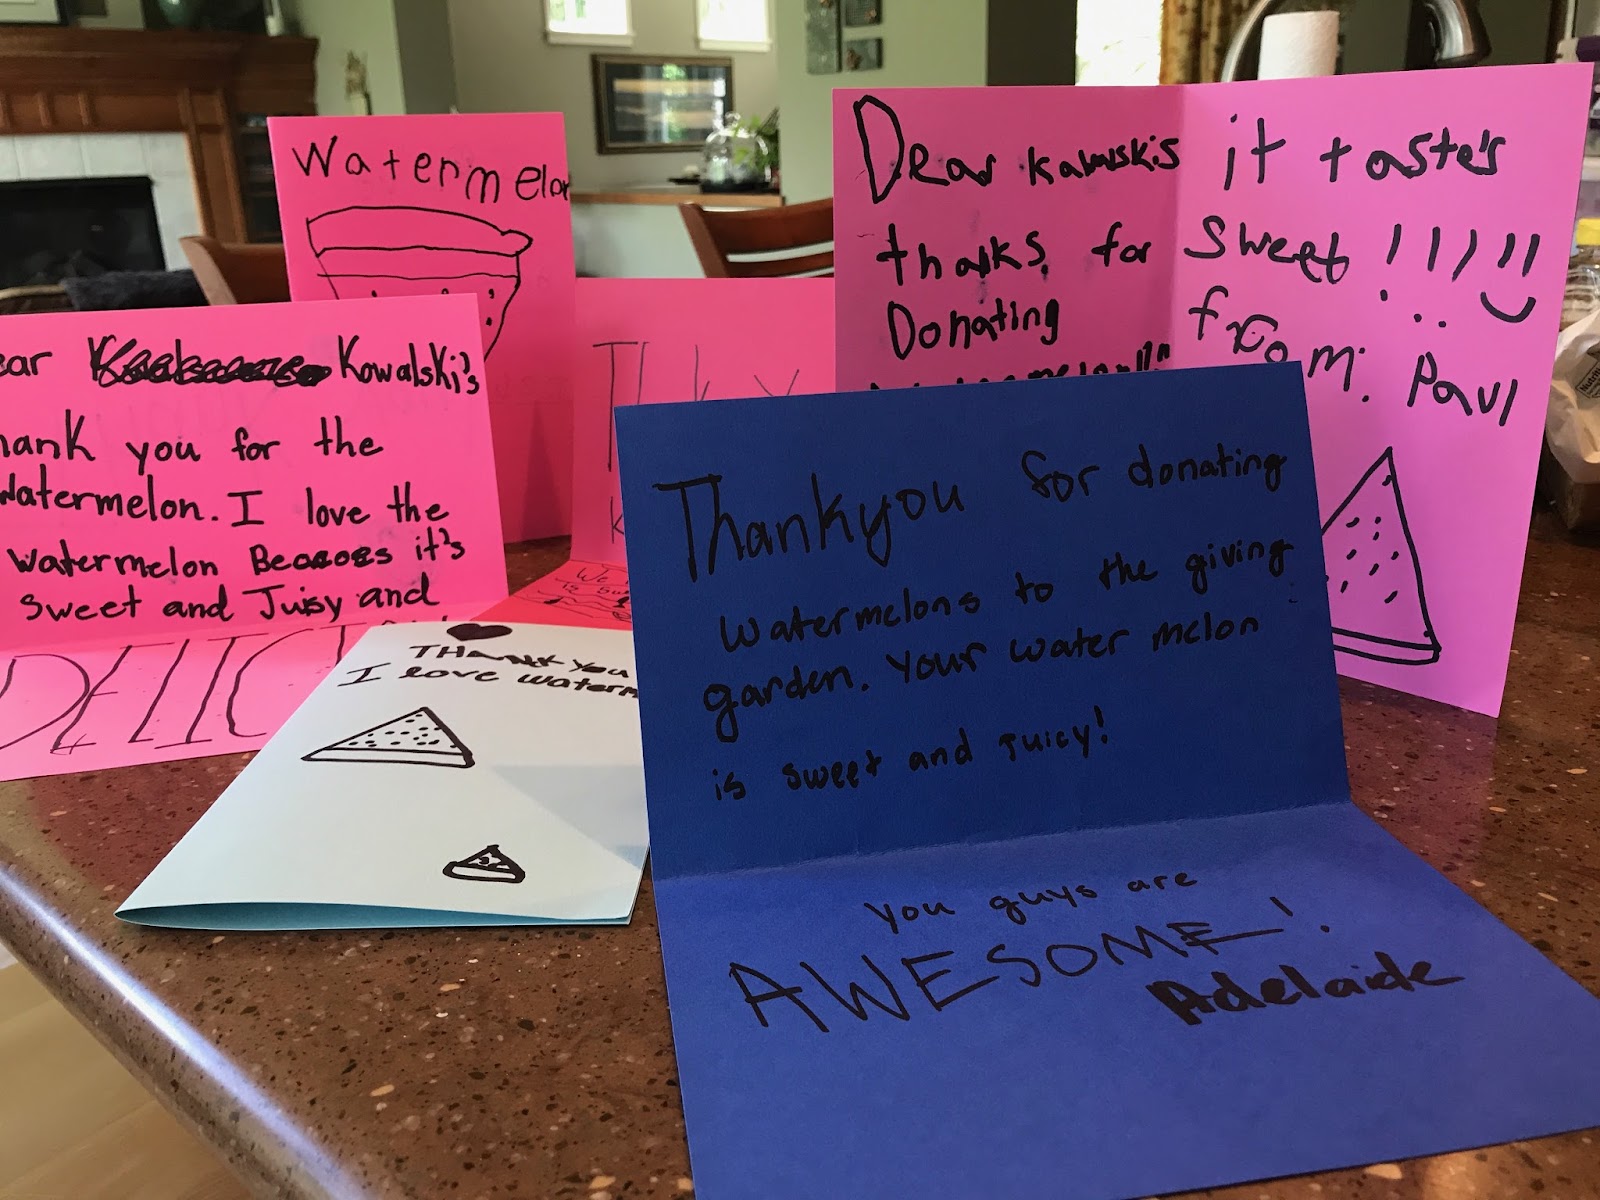 Watermelon
Dear Kawalskis
thanks for
Donating
it taste's
Sweet!!!!!
from. Paul
Kowalski's
you for the
Watermelon. I love the
Watermelon Becoces it's
Sweet and Juisy and
THANK You
I love
Thankyou for donating
Watermelons to the giving
garden. Your water melon
is sweet and Juicy!
You guys are
AWESOME!
Adelaide